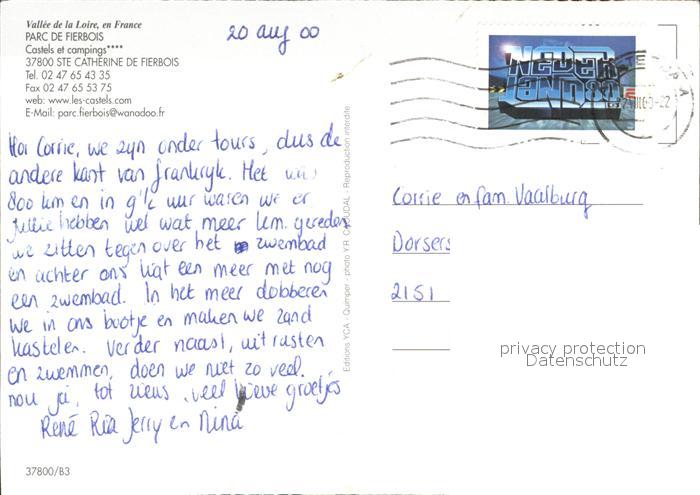 Vallée de la Loire, en France
PARC DE FIERBOIS
Castels et campings****
37800 STE CATHERINE DE FIERBOIS
Tel. 02 47 65 43 35
Fax 02 47 65 53 75
web: www.les-castels.com
E-Mail: parc.fierbois@wanadoo.fr
20 aug 00
Hoi Corrie, we zijn onder tours, dus de
andere kant van frankrijk. Het was
800 km en in 9½ uur waren we er
Jullie hebben wel wat meer km. gereden
we zitten tegen over het zwembad
en achter ons ligt een meer met nog
een zwembad. In het meer dobberen
we in ons bootje en maken we zand
kastelen. Verder naast, uitrusten
en zwemmen, doen we niet zo veel.
nou ja, tot ziens. veel lieve groetjes
René Ria Jerry en Nina
37800/B3
Editions YCA - Quimper - photo Y.R. CAOUDAL - Reproduction interdite
NEDER
LAND 80
Corrie en fam. Vaalburg
Dorsers
2151
privacy protection
Datenschutz